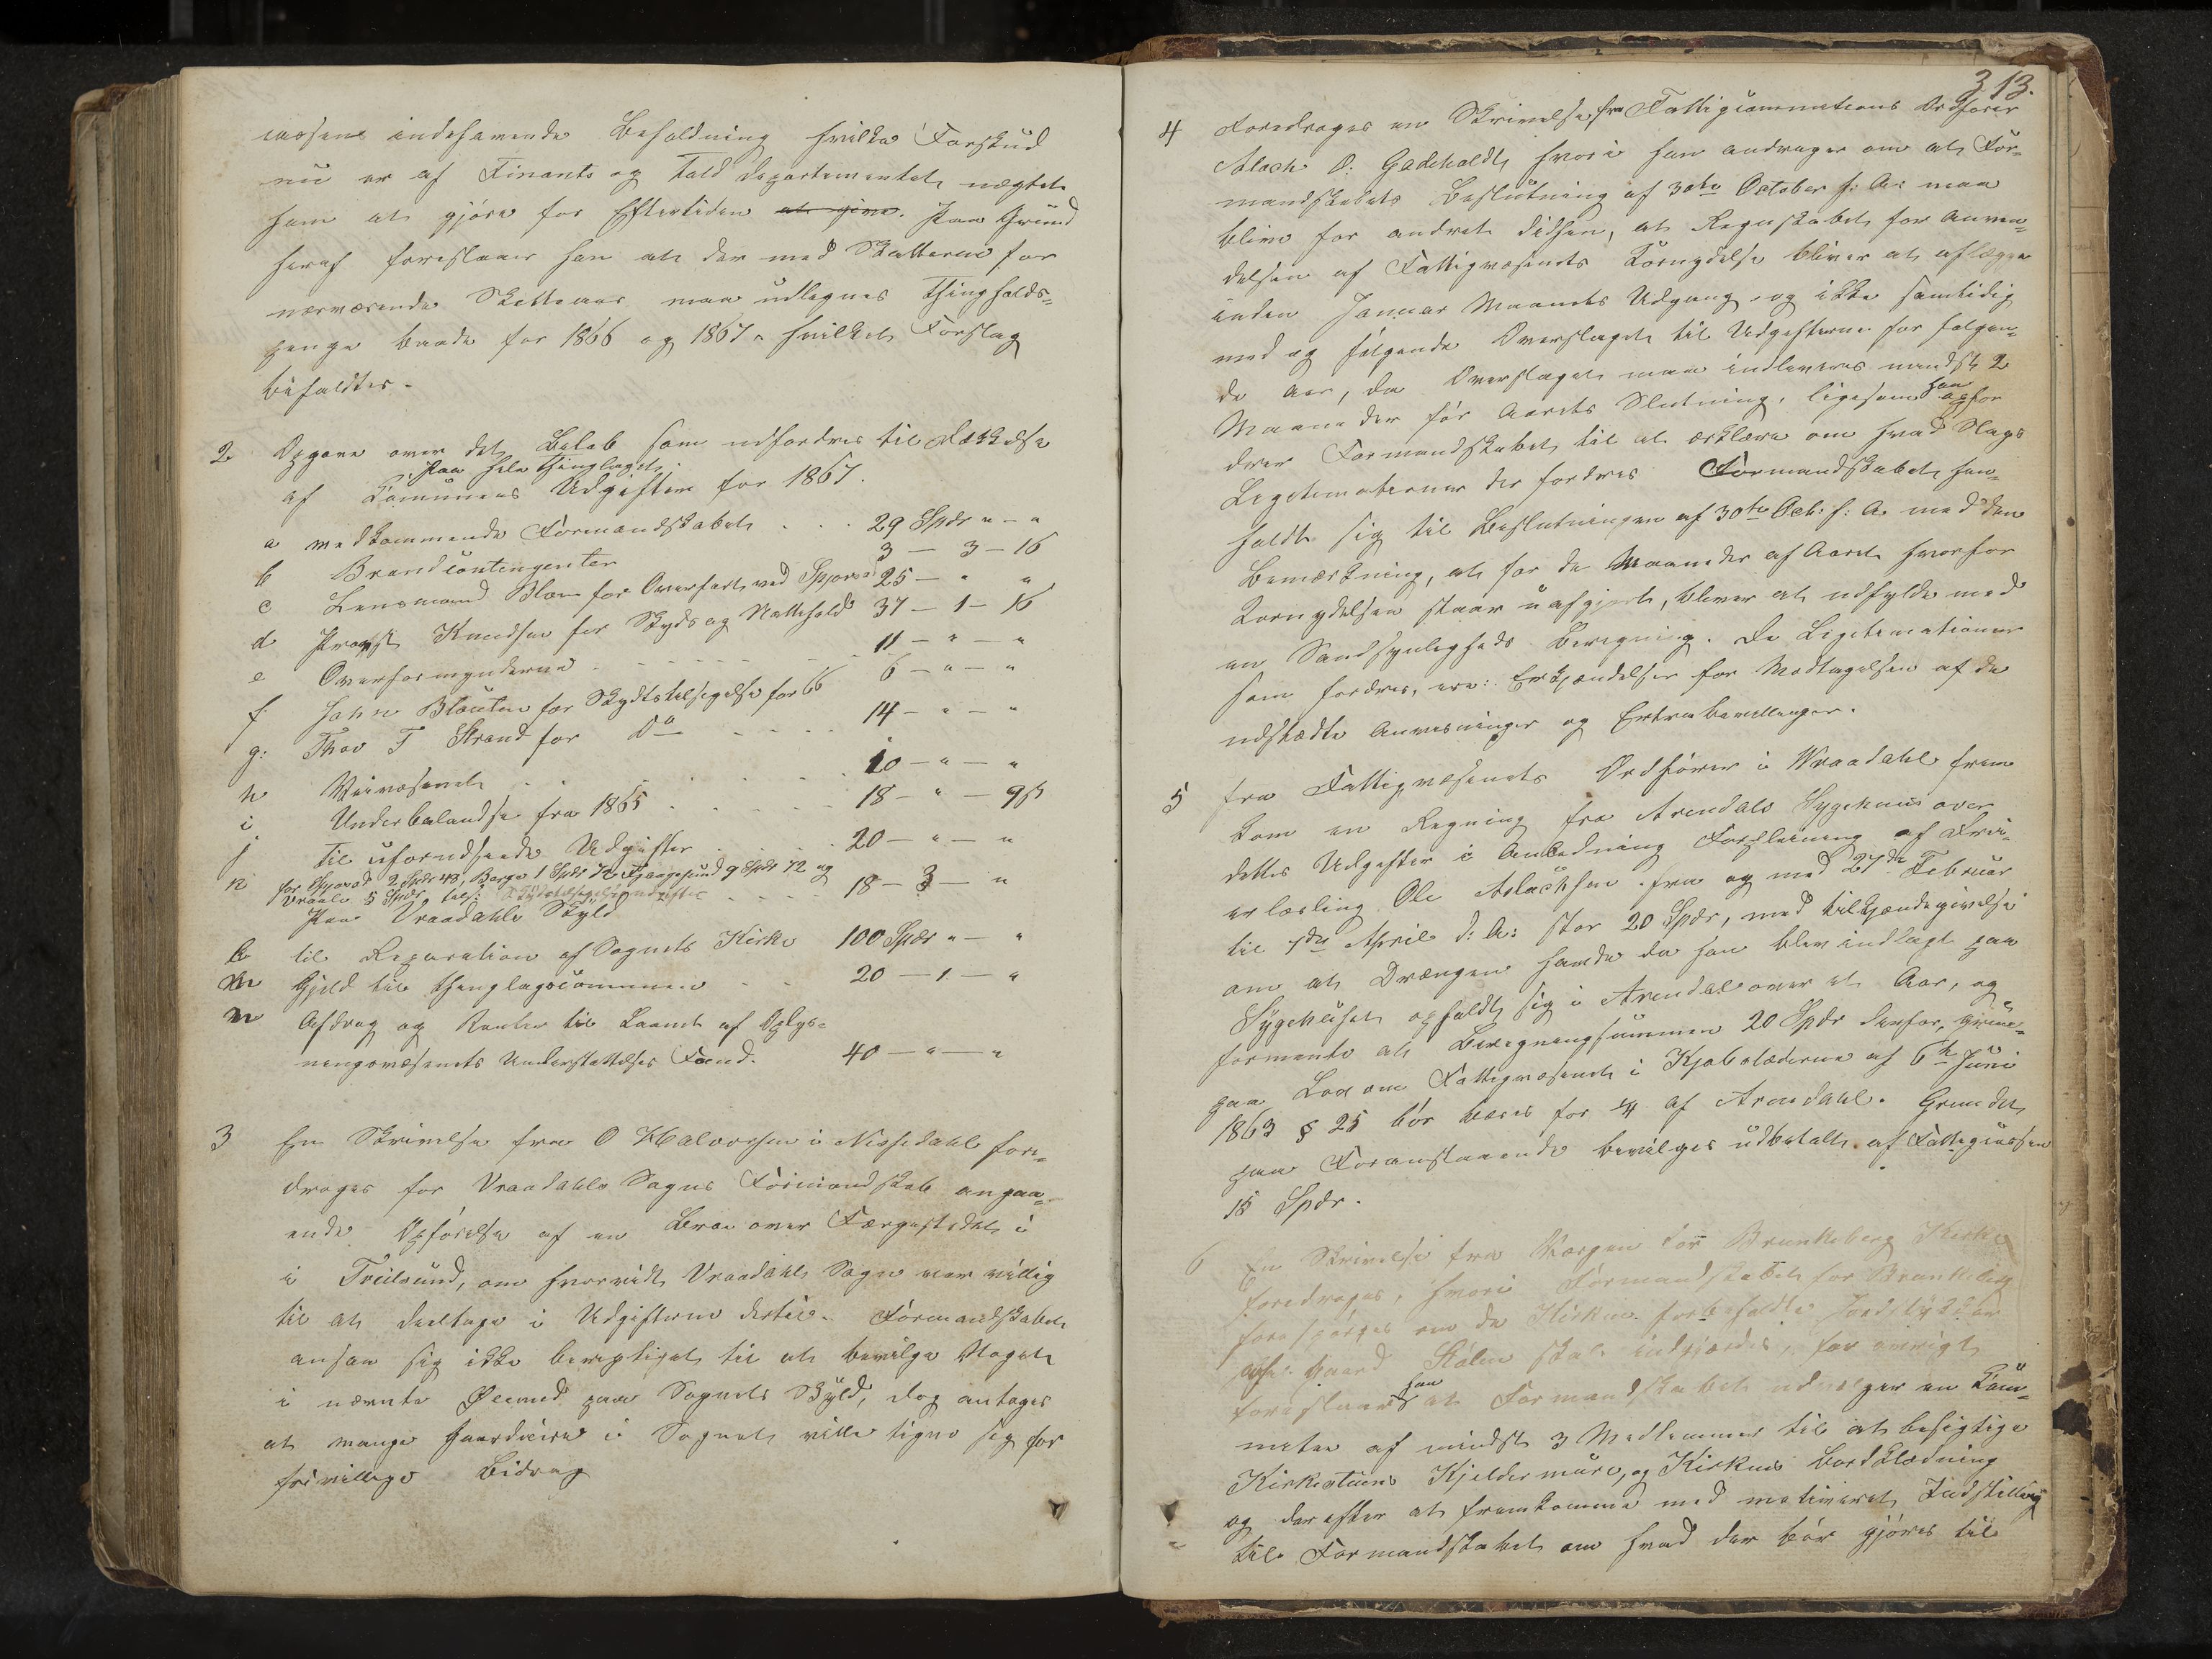 cassens indehavende Beholdning hvilke Forskud
nu er af Finants og Told Departementet nægtet
ham at gjøre for Eftertiden at give. Paa Grund
heraf foreslaaer han at der med Skatterne for
nærværende Skatteaar maa udlignes Thingholds=
penge baade for 1866 og 1867 - hvilket Forslag
bifaldtes.
2 Opgave over det Beløb som udfordres til Dækkelse
paa hele Thinglaget
af Communens Udgifter for 1867.
a vedkommende Formandskabet . . . 29 Spdr " - "
b Brandcontingenter 3 — 3 — 16
c Lensmand Blom for Overfart ved Spjosod 25 — " "
d Provst Knudsen for Skyds og Nattehold 37 — 1 — 16
e Overformynderne . . . . 11 — " — "
f John Blauten for Skydstilsigelse for 66 6 — " — "
g: Thov T Strand for D° . . . . 14 — " — "
h Veivæsenet . . . . 10 — " — "
i Underbalandse fra 1865 . . . . 18 — " — 96
j til uforudseede Udgifter . . . 20 — " — "
k for Spjosod 2 Spdr 48, Berge 1 Spdr 72 og 9 Spdr 72 og
Vraale 5 Spdr, Skydstilsigelseudgifter . . . 18 — 3 — "
Paa Vraadahls Skyld
l til Reparation af Sognets Kirke 100 Spdr " — "
m Gjeld til Thinglagscommunen . . 20 — 1 — "
n Afdrag og Renter til Laanet af Oplys=
ningsvæsenets Understøttelses Fond. 40 — " — "
3 En Skrivelse fra O Halvorsen i Nissedahl fore=
droges for Vraadahls Sogns Formandskab angaa=
ende Opførelse af en Broe over Færgestedet i
i Treilsund, om hvorvidt Vraadahls Sogn var villig
til at deeltage i Udgifterne dertil. Formandskabet
ansaa sig ikke berettiget til at bevilge Noget
i nævnte Øiemed paa Sognets Skyld, dog antages
at mange Gaardeiere i Sognet ville tegne sig for
frivillige Bidrag
313.
4 Foredroges en Skrivelse fra Fattigcommissions Ordfører
Aslach O: Gadeholdt, hvori han andrager om at For=
mandskabets Beslutning af 30te October f: A: maa
blive forandret didhen, at Regnskabet for Anven=
delsen af Fattigvæsenets Kornydelse bliver at aflægge
inden Januar Maaneds Udgang, og ikke samtidig
med og følgende Overslaget til Udgifterne for følgen=
de Aar, da Overslaget maa indleveres mindst 2
Maaneder før Aarets Slutning, ligesom han opfor
drer Formandskabet til at erklære om hvad Slags
Legitimationer der fordres Formandskabet hen=
holdt sig til Beslutningen af 30te Oct: f: A. med den
Bemærkning, at for de Maaneder af Aaret hvorfor
Kornydelsen staar uafgjort, bliver at udfylde med
en Sandsynligheds Beregning. De Legitimationer
som fordres, ere: Erkjendelser for Modtagelsen af de
udstædte Anvisninger og Extrabevillinger.
5 fra Fattigvæsenets Ordfører i Vraadahl frem
kom en Regning fra Arendals Sygehuus over
dettes Udgifter i Anledning Forpleining af
lærling Ole Aslachsen fra og med 27de Februar
til 7de April d: A: stor 20 Spdr, med tilkjendegivelse
om at Drængen havde da han blev indlagt paa
Sygehuset opholdt sig i Arendal over et Aar, og
formente at Beregningssummen 20 Spdr derfor,
paa Lov om Fattigvæsenet i Kjøbstæderne af 6te Juni
1863 § 25 bør bæres for ¼ af Arendahl. Grundet
paa Foranstaaende bevilges udbetalt af Fattigcassen
15 Spdr.
6 En Skrivelse fra Værgen for Brunkeberg Kirke
foredroges, hvori Formandskabet for Brunkeberg
forespørges om de Kirken forbeholdte Jordstykker
Gaard skal indgjærdes, for øvrigt
foreslaaer han at Formandskabet udvælger en Com=
mitee af mindst 3 Medlemmer til at besigtige
Kirkestuens Kjeldermure, og Kirkens Bordklædning
og derefter at fremkomme med motiveret Indstilling
til Formandskabet om hvad der bør gjøres til